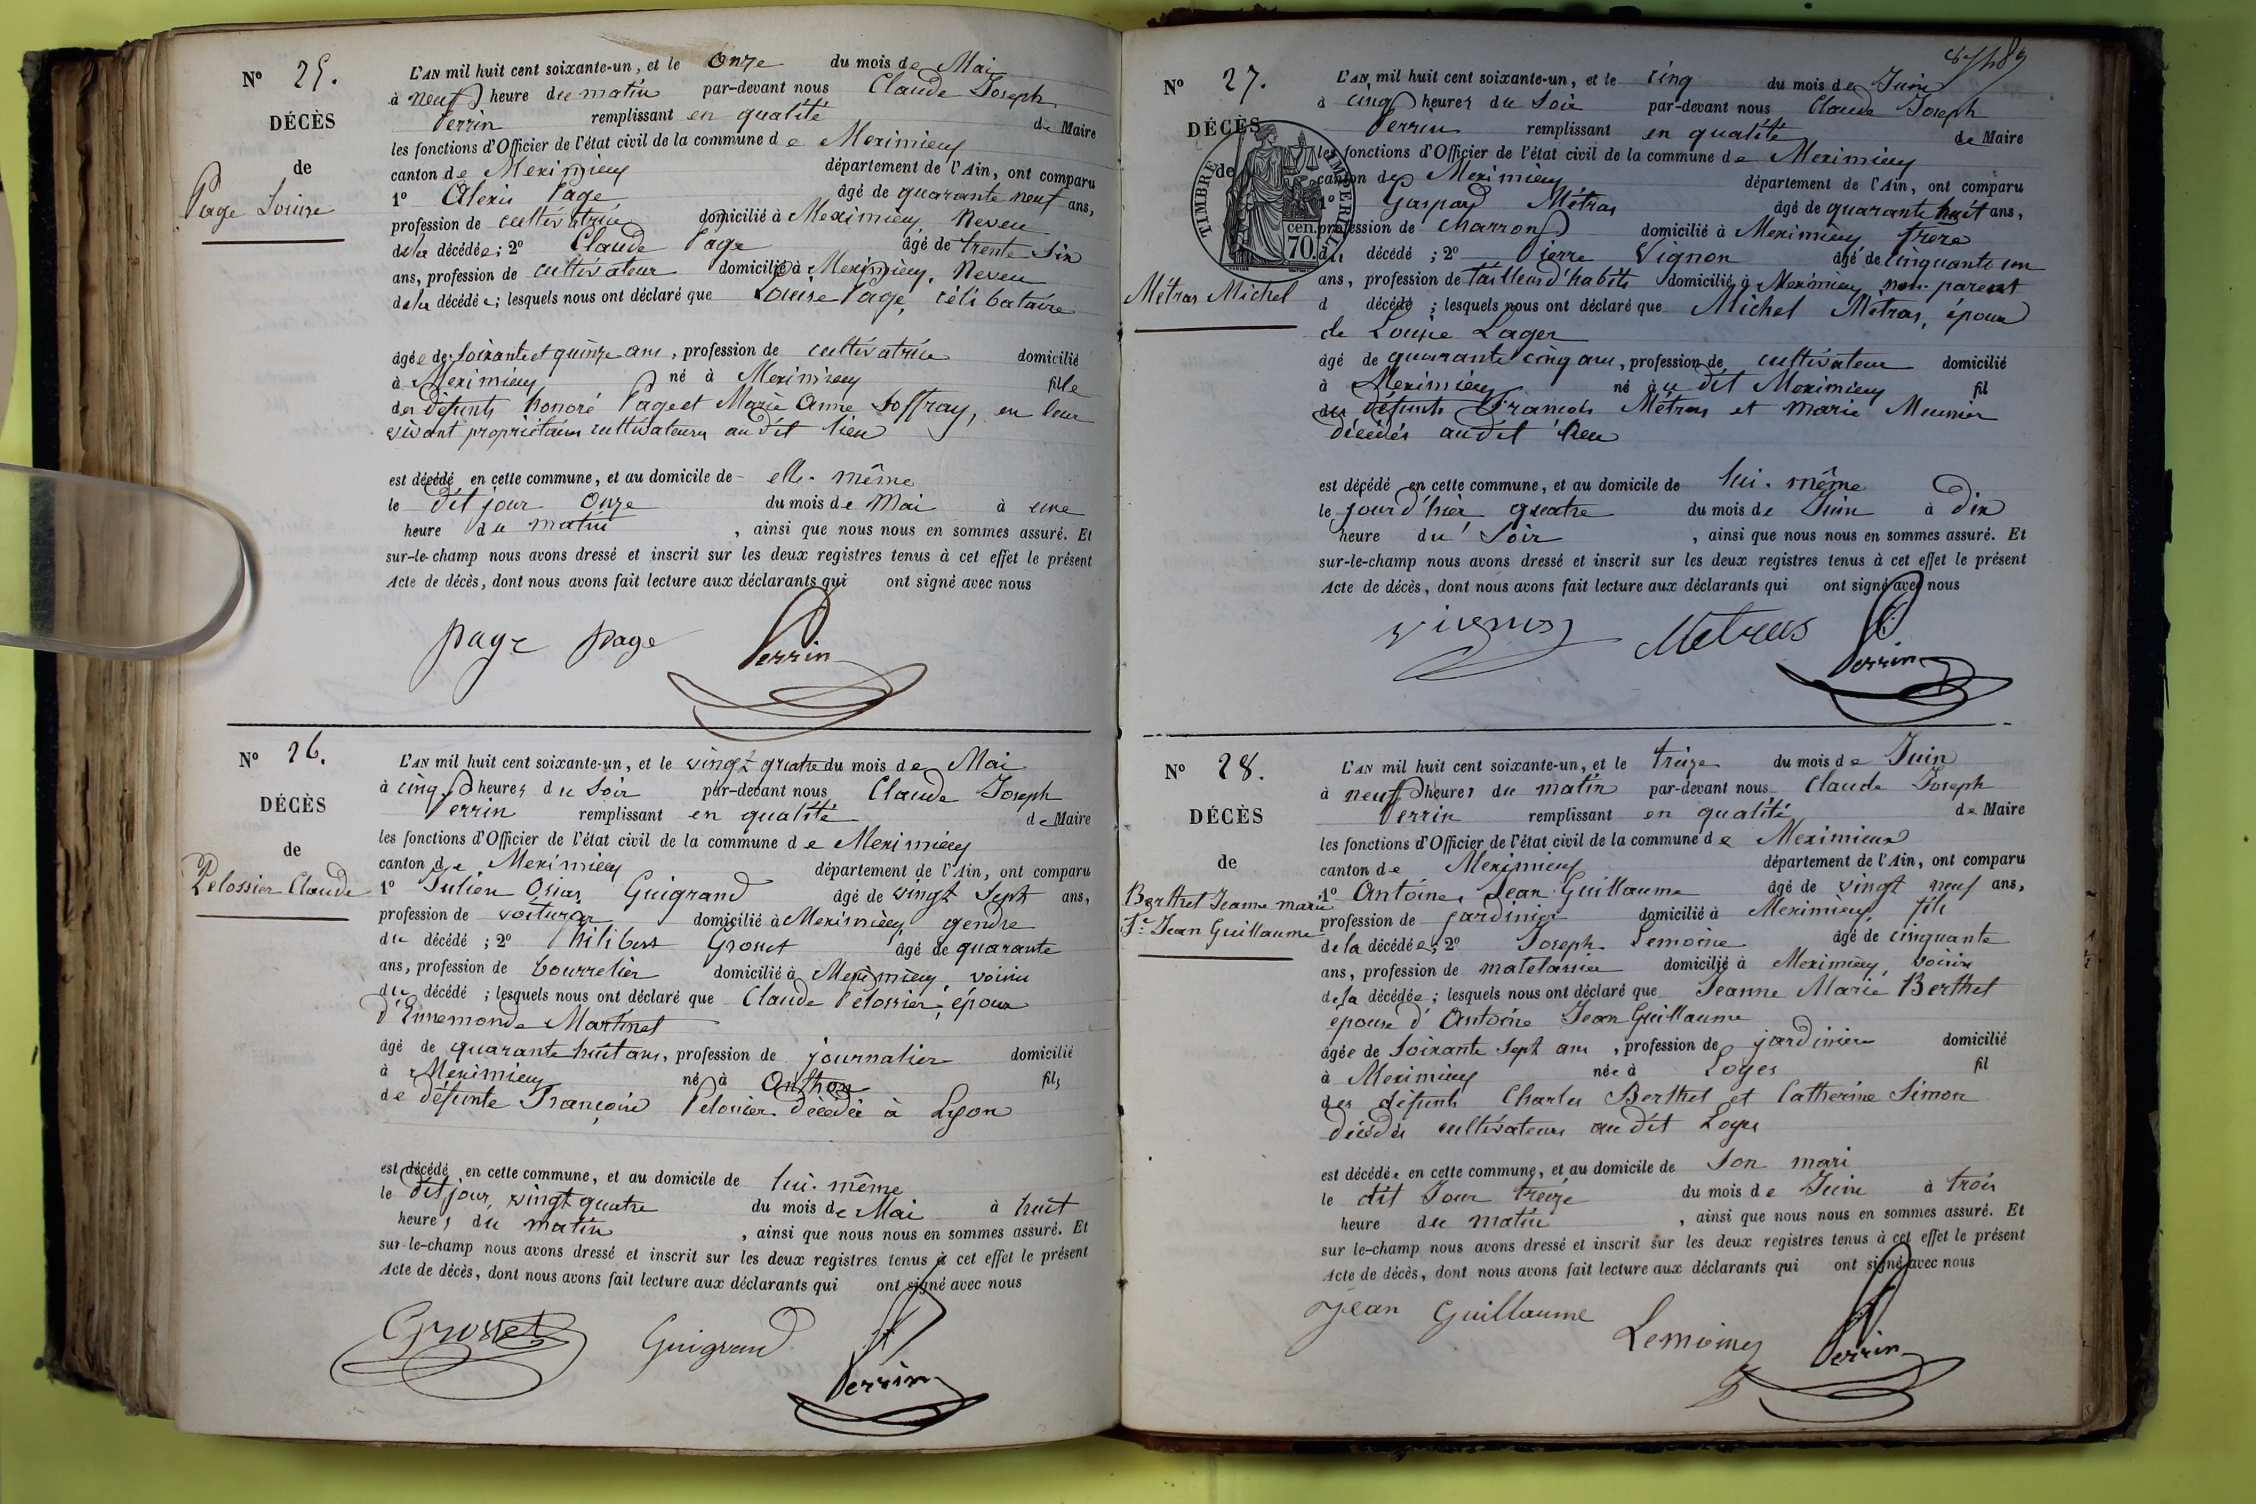 N° 25.
DÉCÈS
de
Page Louise
L'AN mil huit cent soixante-un, et le onze du mois de Mai
à neuf heure du matin par-devant nous Claude Joseph
Perrin remplissant en qualité de Maire
les fonctions d'Officier de l'état civil de la commune de Meximieux
canton de Meximieux département de l'Ain, ont comparu
1° Alexis Page âgé de quarante neuf ans,
profession de cultivatrice domicilié à Meximieux, Neveu
de la décédée; 2° Claude Page âgé de trente Six
ans, profession de cultivateur domicilié à Meximieux, Neveu
de la décédée; lesquels nous ont déclaré que Louise Page, célibataire
âgée de Soixante et quinze ans, profession de cultivatrice domicilié
à Meximieux né à Meximieux fille
des défunts honoré Page et Marie Anne Joffray, en leur
vivant propriétaires cultivateurs au dit lieu
est décédé en cette commune, et au domicile de elle-même
le dit jour Onze du mois de Mai à une
heure du matin, ainsi que nous nous en sommes assuré. Et
sur-le-champ nous avons dressé et inscrit sur les deux registres tenus à cet effet le présent
Acte de décès, dont nous avons fait lecture aux déclarants qui ont signé avec nous
page page Perrin
N° 26.
DÉCÈS
de
Pelossier Claude
L'AN mil huit cent soixante-un, et le vingt quatre du mois de Mai
à cinq heures du Soir par-devant nous Claude Joseph
Perrin remplissant en qualité de Maire
les fonctions d'Officier de l'état civil de la commune de Meximieux
canton de Meximieux département de l'Ain, ont comparu
1° Julien Guigrand âgé de vingt Sept ans,
profession de voiturier domicilié à Meximieux, gendre
du décédé; 2° Philibert Grosset âgé de quarante
ans, profession de bourrelier domicilié à Meximieux, voisin
du décédé; lesquels nous ont déclaré que Claude Pelossier, époux
d'Ennemonde Martinet
âgé de quarante huit ans, profession de journalier domicilié
à Meximieux né à Anthon fils
de défunte Françoise Pelossier décédée à Lyon
est décédé en cette commune, et au domicile de lui-même
le dit jour vingt quatre du mois de Mai à huit
heures du matin, ainsi que nous nous en sommes assuré. Et
sur-le-champ nous avons dressé et inscrit sur les deux registres tenus à cet effet le présent
Acte de décès, dont nous avons fait lecture aux déclarants qui ont signé avec nous
Grosset Guigrand Perrin
N° 27.
DÉCÈS
de
TIMBRE IMPERIAL
70. cen.
Métras Michel
L'AN mil huit cent soixante-un, et le cinq du mois de Juin
à cinq heures du Soir par-devant nous Claude Joseph
Perrin remplissant en qualité de Maire
les fonctions d'Officier de l'état civil de la commune de Meximieux
canton de Meximieux département de l'Ain, ont comparu
1° Gaspard Métras âgé de quarante huit ans,
profession de Charron domicilié à Meximieux, frere
du décédé; 2° Pierre Vignon âgé de cinquante un
ans, profession de tailleur d'habits domicilié à Meximieux non parent
d décédé; lesquels nous ont déclaré que Michel Métras, époux
de Louise Lager
âgé de quarante cinq ans, profession de cultivateur domicilié
à Meximieux né au dit Meximieux fil
des défunts François Métras et Marie Meunier
décédés audit lieu
est décédé en cette commune, et au domicile de lui-même
le jour d'hier quatre du mois de Juin à dix
heure du Soir, ainsi que nous nous en sommes assuré. Et
sur-le-champ nous avons dressé et inscrit sur les deux registres tenus à cet effet le présent
Acte de décès, dont nous avons fait lecture aux déclarants qui ont signé avec nous
Metras Perrin
N° 28.
DÉCÈS
de
Berthet Jeanne marie
Fe Jean Guillaume
L'AN mil huit cent soixante-un, et le treize du mois de Juin
à neuf heures du matin par-devant nous Claude Joseph
Perrin remplissant en qualité de Maire
les fonctions d'Officier de l'état civil de la commune de Meximieux
canton de Meximieux département de l'Ain, ont comparu
1° Antoine Jean Guillaume âgé de vingt neuf ans,
profession de jardinier domicilié à Meximieux, fils
de la décédée; 2° Joseph Lemoine âgé de cinquante
ans, profession de matelassier domicilié à Meximieux, voisin
de la décédée; lesquels nous ont déclaré que Jeanne Marie Berthet
épouse d'Antoine Jean Guillaume
âgée de Soixante Sept ans, profession de jardinière domicilié
à Meximieux née à Loyes fil
des défunts Charles Berthet et Catherine Simon
décédés cultivateurs au dit Loyes
est décédée en cette commune, et au domicile de Son mari
le dit Jour treize du mois de Juin à trois
heure du matin, ainsi que nous nous en sommes assuré. Et
sur le-champ nous avons dressé et inscrit sur les deux registres tenus à cet effet le présent
Acte de décès, dont nous avons fait lecture aux déclarants qui ont signé avec nous
jean Guillaume Lemoine Perrin